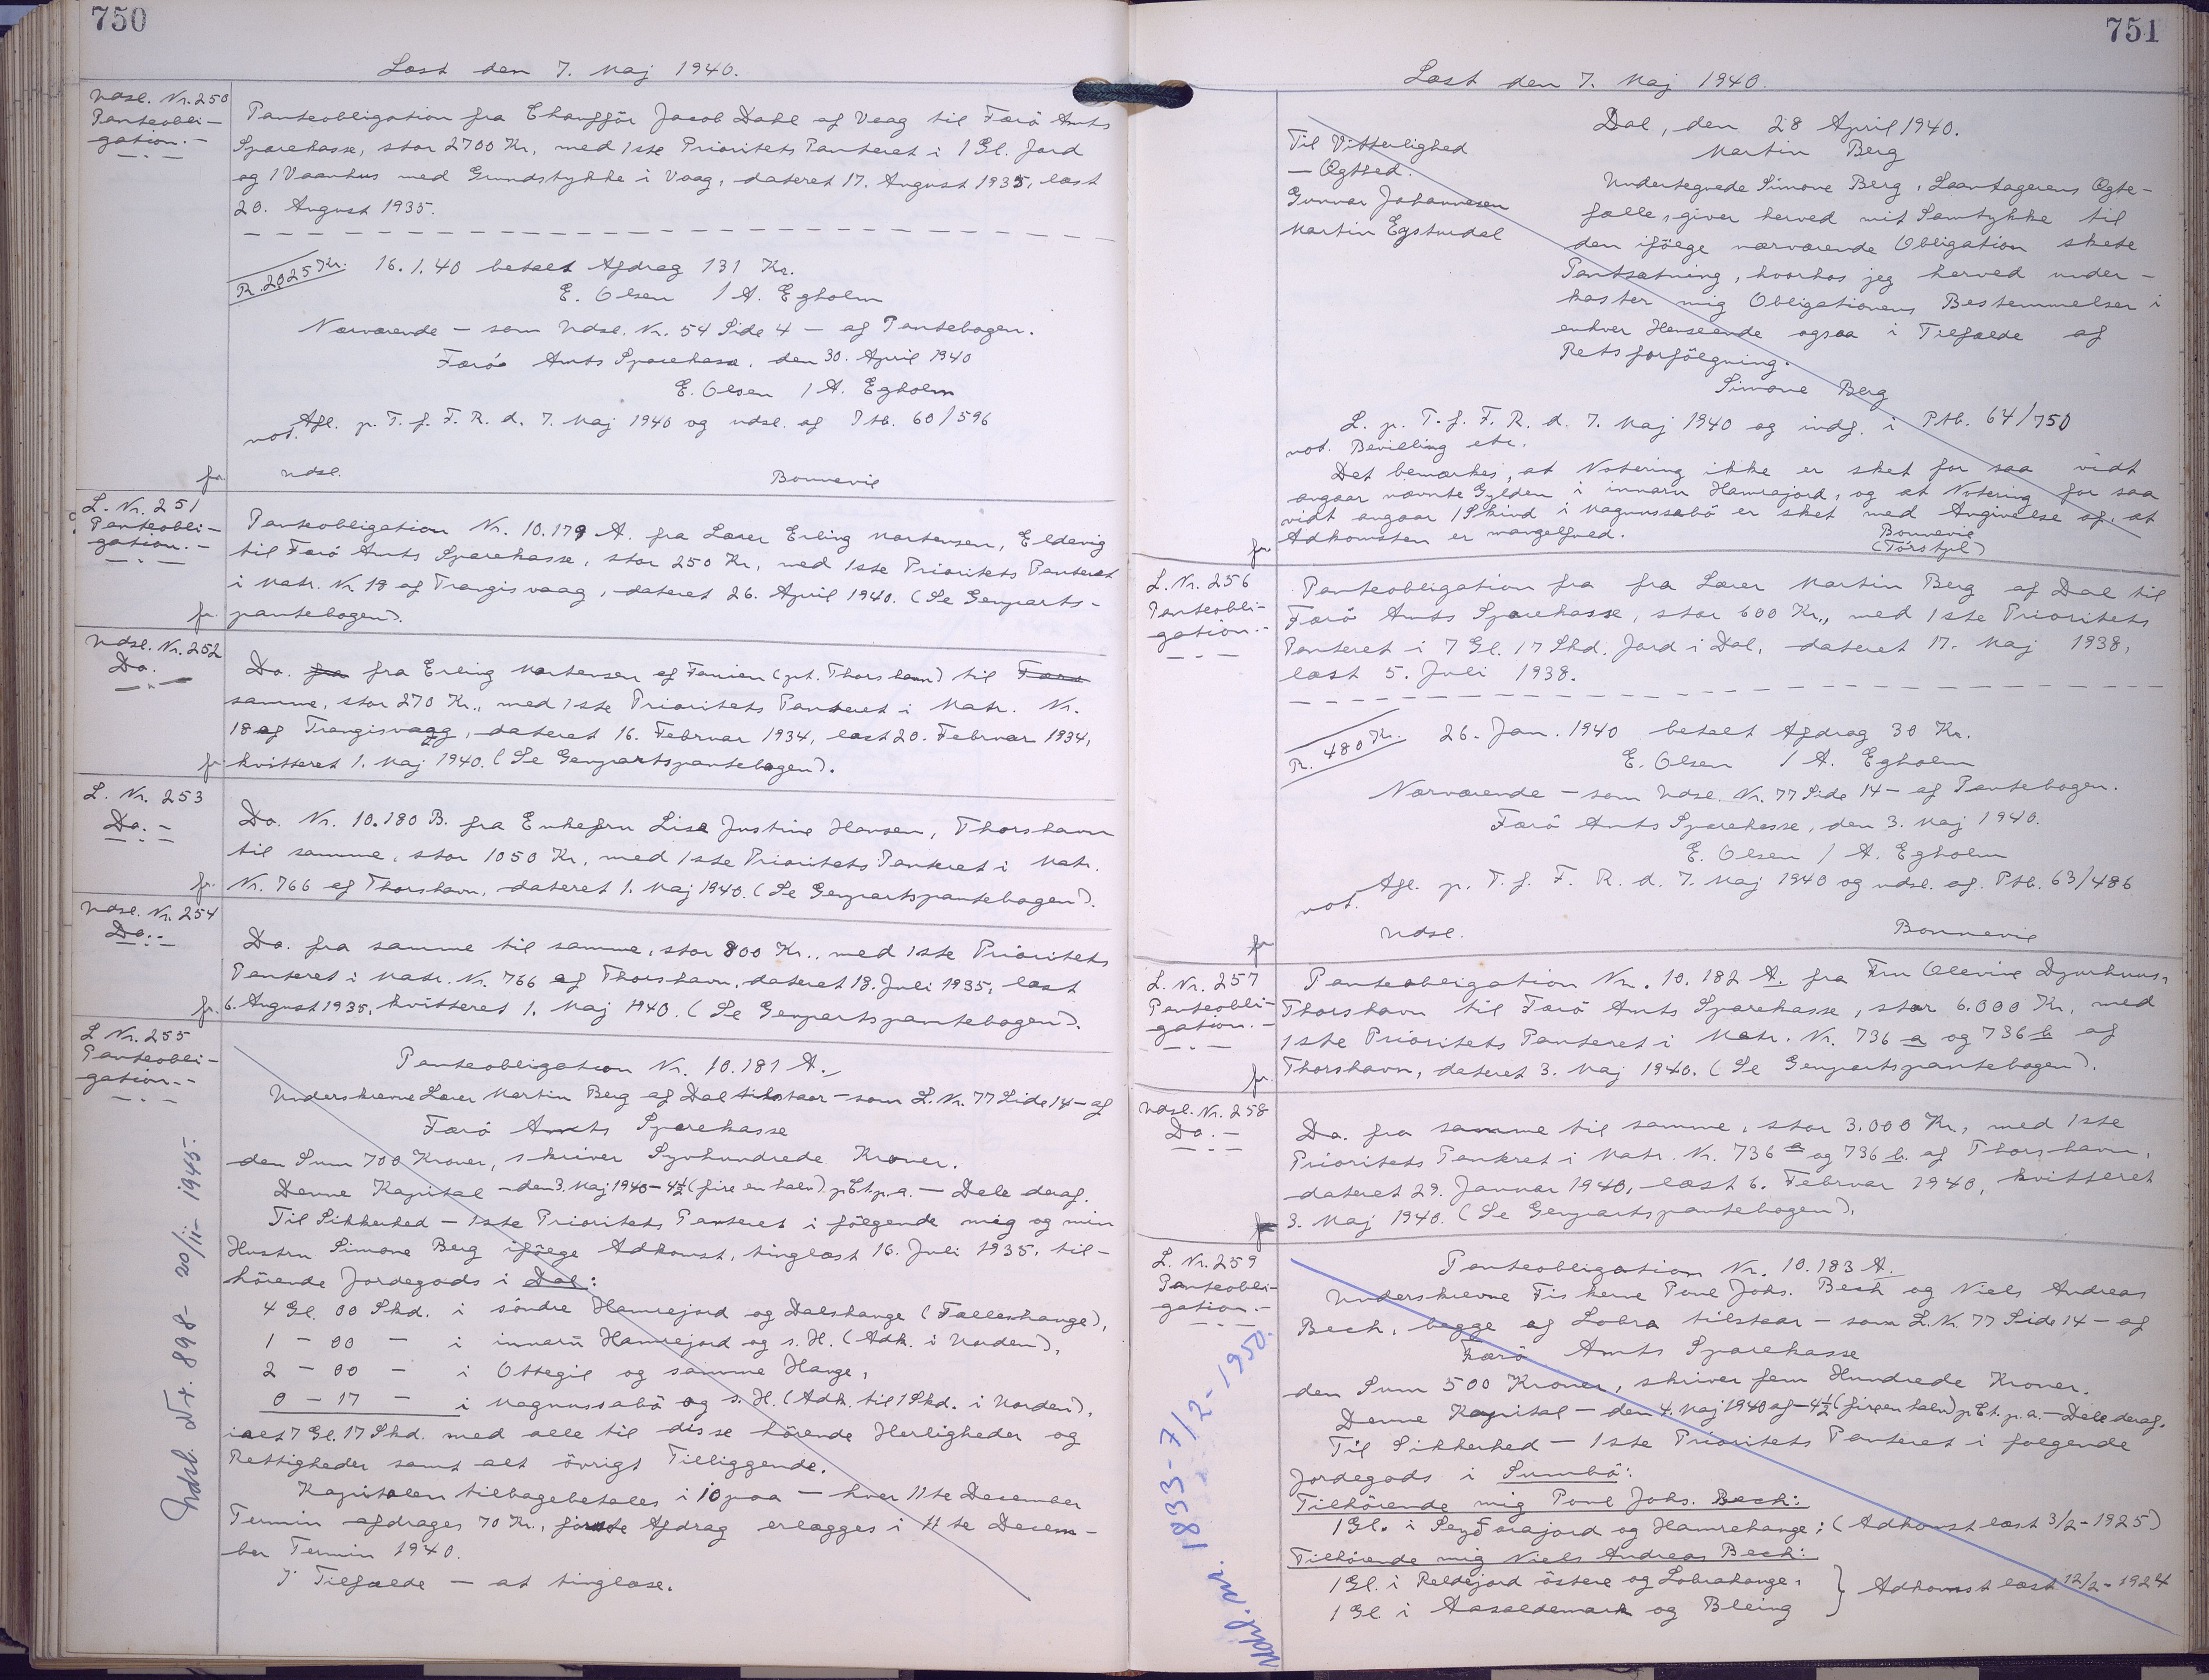 750
Læst den 7. Maj 1940.
Udsl. Nr. 250
Panteobli-
gation.-
Panteobligation fra Chaufför Jacob Dahl af Vaag til Færö Amts
Sparekasse, stor 2700 Kr., med 1ste Prioritets Panteret i 1 Gl. Jord
og 1 Vaanhus med Grundstykke i Vaag, dateret 17. August 1935, læst
20. August 1935.
R. 2025 Kr.
16.1.40 betalt Afdrag 131 Kr.
E. Olsen / A. Egholm
Nærværende - som Udsl. Nr. 54 Side 4 - af Pantebogen.
Færö Amts Sparekasse, den 30. April 1940
E. Olsen / A. Egholm
Afl. p. T. f. F. R. d. 7. Maj 1940 og udsl. af Ptb. 60/596
not.
udsl.
Bonnevie
fr.
L. Nr. 251
Panteobli-
gation.-
Panteobligation Nr. 10.179 A. fra Lærer Erling Mortensen, Eldevig
til Færö Amts Sparekasse, stor 250 Kr., med 1ste Prioritets Panteret
i Matr. Nr. 18 af Trangisvaag, dateret 26. April 1940. (Se Genparts-
fr. pantebogen).
Udsl. Nr. 252
Do.
Do. fra fra Erling Mortensen af Famien (pt. Thorshavn) til Færö
samme, stor 270 Kr., med 1ste Prioritets Panteret i Matr. Nr.
18 af Trangisvaag, dateret 16. Februar 1934, læst 20. Februar 1934,
fr. kvitteret 1. Maj 1940. (Se Genpartspantebogen).
L. Nr. 253
Do.-
Do. Nr. 10.180 B. fra Enkefru Lisa Justine Hansen, Thorshavn
til samme, stor 1050 Kr., med 1ste Prioritets Panteret i Matr.
fr. Nr. 766 af Thorshavn, dateret 1. Maj 1940. (Se Genpartspantebogen).
Udsl. Nr. 254
Do.-
Do. fra samme til samme, stor 800 Kr., med 1ste Prioritets
Panteret i Matr. Nr. 766 af Thorshavn, dateret 18. Juli 1935, læst
fr. 6. August 1935, kvitteret 1. Maj 1940. (Se Genpartspantebogen).
L. Nr. 255
Panteobli-
gation.-
Udsl. Nr. 898- 20/11- 1945.
Panteobligation Nr. 10.181 A.
Underskrevne Lærer Martin Berg af Dal tilstaar - som L. Nr. 77 Side 14 - af
Færö Amts Sparekasse
den Sum 700 Kroner, skriver Syvhundrede Kroner.
Denne Kapital - den 3. Maj 1940 - 4½ (fire en halv) pCt. p.a. - Dele deraf.
Til Sikkerhed - 1ste Prioritets Panteret i fölgende mig og min
Hustru Simone Berg ifölge Adkomst, tinglæst 16. Juli 1935, til-
hörende Jordegods i Dal:
4 Gl. 00 Skd. i söndre Hamrejord og Dalshauge (Fælleshauge),
1 - 00 - i innaru Hamrejord og s. H. (Adk. i Orden),
2 - 00 - i Ottegil og samme Hauge,
0 - 17 - i Magnussabö og s. H. (Adk. til 1 Skd. i Orden),
ialt 7 Gl. 17 Skd. med alle til disse hörende Herligheder og
Rettigheder samt alt övrigt Tilliggende.
Kapitalen tilbagebetales i 10 paa - hver 11te December
Termin afdrages 70 Kr., förste Afdrag erlægges i 11te Decem-
ber Termin 1940.
I Tilfælde - at tinglæse.
751
Læst den 7. Maj 1940.
Dal, den 28 April 1940.
Martin Berg
Til Vitterlighed
- Ægthed.
Gunnar Johannesen
Martin Egstrudal
Undertegnede Simone Berg, Laantagerens Ægte-
fælle, giver herved mit Samtykke til
den ifölge nærværende Obligation skete
Pantsætning, hvorhos jeg herved under-
kaster mig Obligationens Bestemmelser i
enhver Henseende ogsaa i Tilfælde af
Retsforfölgning.
Simone Berg
L. p. T. f. F. R. d. 7. Maj 1940 og indf. i Ptb. 64/750
not. Bevilling etc.
Det bemærkes, at Notering ikke er sket for saa vidt
angaar nævnte Gylden i innaru Hamrajord, og at Notering for saa
vidt angaar 1 Skind i Magnussabö er sket med Angivelse af, at
Adkomsten er mangelfuld.
Bonnevie
fr.
L. Nr. 256
Panteobli-
gation.-
Panteobligation fra fra Lærer Martin Berg af Dal til
Færö Amts Sparekasse, stor 600 Kr., med 1ste Prioritets
Panteret i 7 Gl. 17 Skd. Jord i Dal, dateret 17. Maj 1938,
læst 5. Juli 1938.
R. 480 Kr.
26. Jan. 1940 betalt Afdrag 30 Kr.
E. Olsen / A. Egholm
Nærværende - som Udsl. Nr. 77 Side 14 - af Pantebogen.
Færö Amts Sparekasse, den 3. Maj 1940.
E. Olsen / A. Egholm
Afl. p. T. f. F. R. d. 7. Maj 1940 og udsl. af Ptb. 63/486
not.
Udsl.
Bonnevie
fr.
L. Nr. 257
Panteobli-
gation.-
Panteobligation Nr. 10.182 A. fra Fru Olevine Djurhuus,
Thorshavn til Færö Amts Sparekasse, stor 6.000 Kr., med
1ste Prioritets Panteret i Matr. Nr. 736 a og 736 b af
fr. Thorshavn, dateret 3. Maj 1940. (Se Genpartspantebogen).
Udsl. Nr. 258
Do.-
Do. fra samme til samme, stor 3.000 Kr., med 1ste
Prioritets Panteret i Matr. Nr. 736 a og 736 b. af Thorshavn,
dateret 29. Januar 1940, læst 6. Februar 1940, kvitteret
fr. 3. Maj 1940. (Se Genpartspantebogen).
L. Nr. 259
Panteobli-
gation.-
Udsl. nr. 1833-7/2-1950.
Panteobligation Nr. 10.183 A.
Underskrevne Fiskerne Poul Johs. Bech og Niels Andreas
Bech, begge af Lobra tilstaar - som L. Nr. 77 Side 14 - af
Færö Amts Sparekasse
den Sum 500 Kroner, skriver fem Hundrede Kroner.
Denne Kapital - den 4. Maj 1940 af - 4½ (fire en halv) pCt. p.a. - Dele deraf.
Til Sikkerhed - 1ste Prioritets Panteret i folgende
Jordegods i Sumbö:
Tilhörende mig Poul Johs. Bech:
1 Gl. i Hamrehauge; (Adkomst læst 3/2-1925)
Tilhörende mig Niels Andreas Bech:
1 Gl. i Reldejord östere og Lobrahauge,
1 Gl. i og Bleing } Adkomst læst 12/2-1924